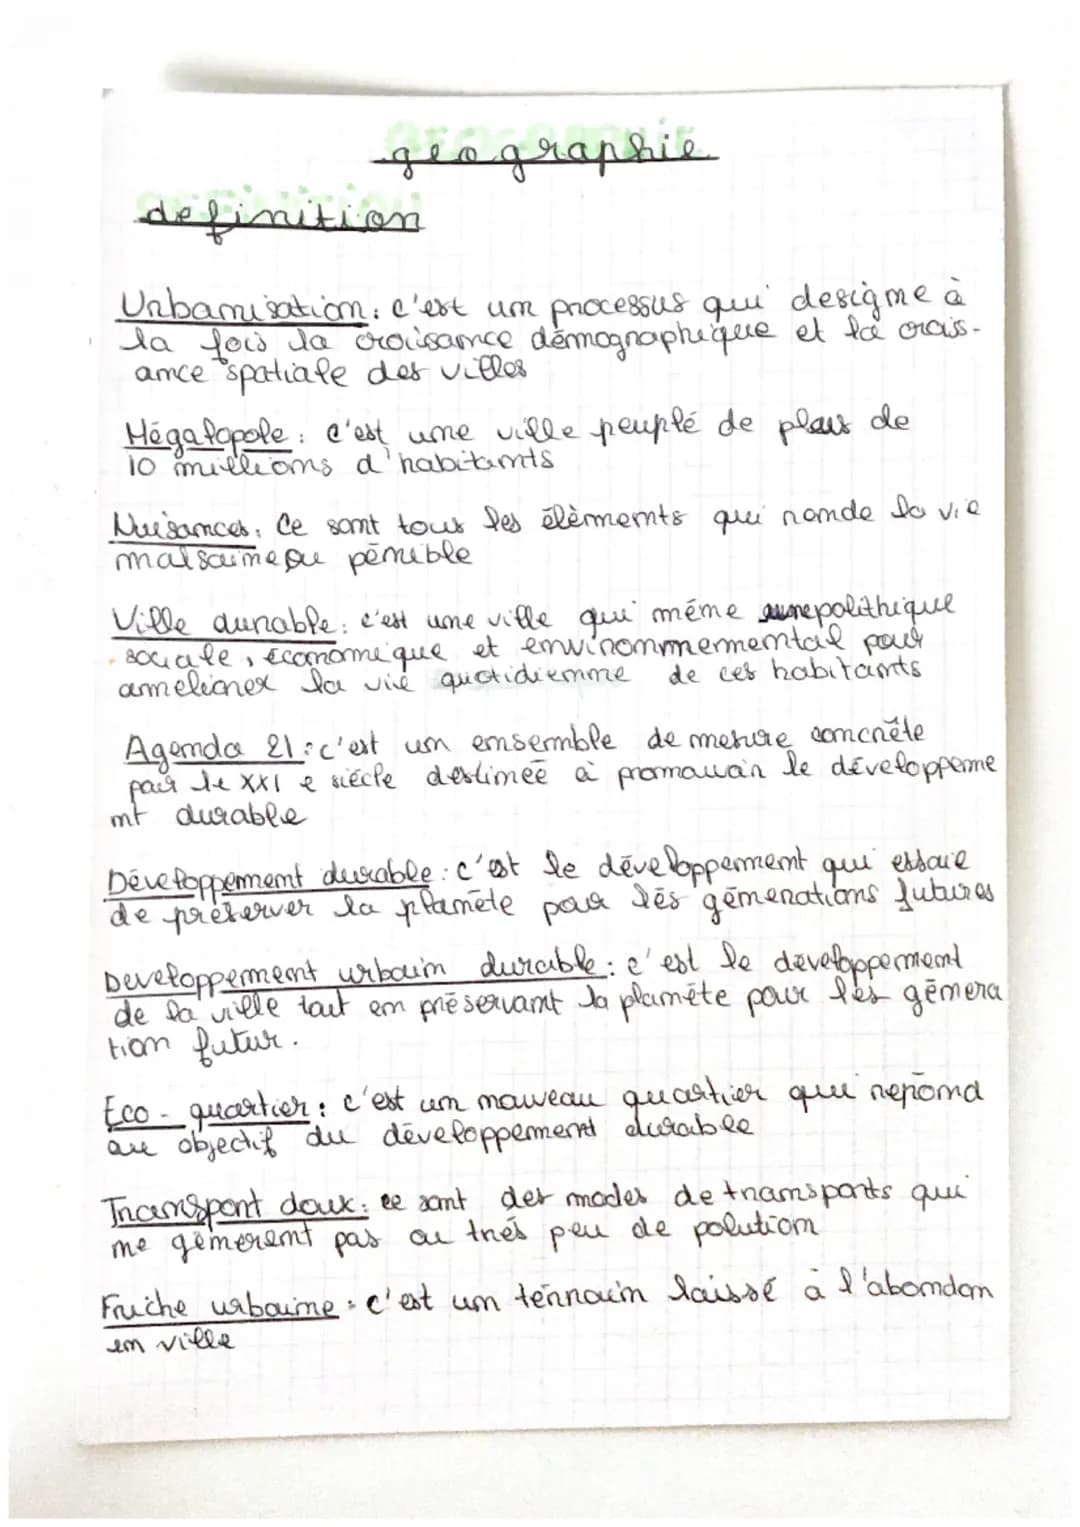 géographie
definition
Urbanisation : c'est un processus qui designe à
la fois la croissance démographique et la crois-
ance spatiale des villes
Mégalopole : c'est une ville peuplé de plus de
10 millions d'habitants
Nuisances : Ce sont tous les élèments qui rende la vie
malsaine ou pénible
Ville durable : c'est une ville qui méne une polithique
sociale, économique et environnemental pour
ameliorer la vie quotidienne de ces habitants
Agenda 21 : c'est un ensemble de mesure concrète
pour le XXI e siécle destinée à promouvoir le développeme
nt durable
Développement durable : c'est le développement qui essaie
de préserver la planéte pour les générations futures
Developpement urbain durable : c'est le developpement
de la ville tout en préservant la planéte pour les généra
tion futur.
Eco - quartier : c'est un nouveau quartier qui repond
au objectif du développement durable
Transport doux : ce sont des modes de transports qui
ne génerent pas ou trés peu de polution
Friche urbaine : c'est un terrain laissé à l'abondon
en ville